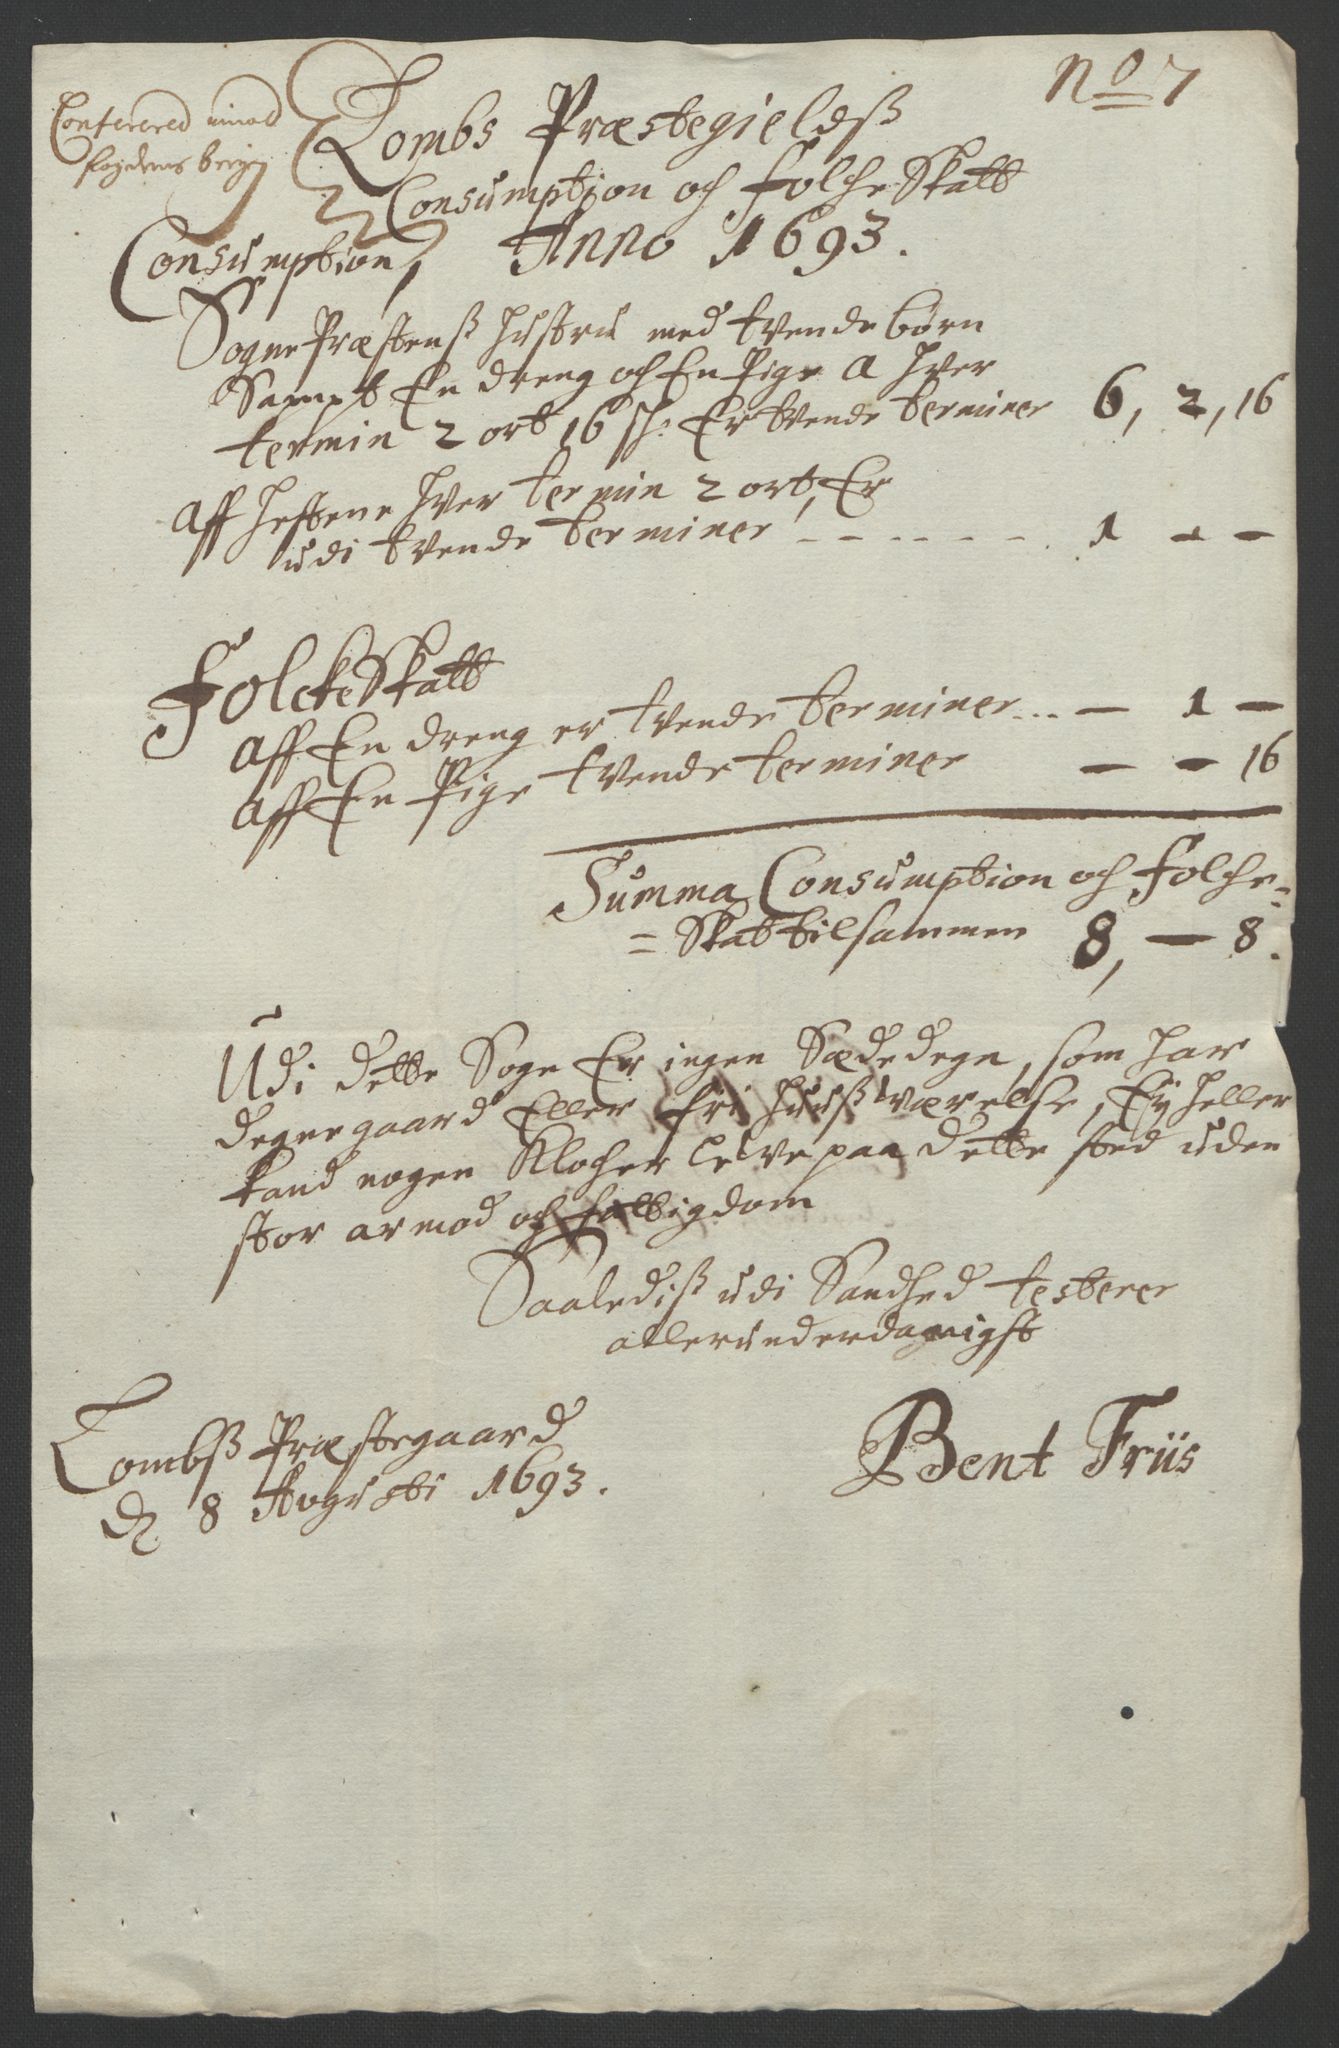 No 7
Conferered imod
fogdens
Lombs Præstegieldß
Consumption och folche Skatt
Consumption, Anno 1693.
Sogne Præstenß hustru med tvende børn
Sampt En dreng och En Pige a hver
termin 2 ort 16 sh: Er tvende terminer 6, 2, 16
Aff hestene hver termin 2 ort, Er
udi tvende terminer - - - - - - 1 - -
FolckeSkatt
Aff En dreng er tvende terminer... - 1 -
Aff En Pige tvende terminer - - 16
Summa Consumption och folche=
=Skat tilsammen 8, - 8.
Udi dette Sogn Er ingen Sædedegn, som har
degnegaard Eller fri huußværelse, Ej heller
kand nogen Klocher leve paa dette sted uden
stor armod och fattigdom
Saalediß udi Sandhed testerer
allerunderdanigst
Lombß Præstegaard
d. 8 Augusti 1693.
Bent Friis